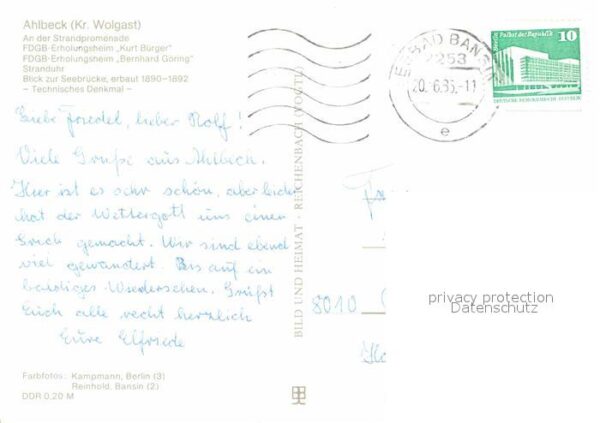 Ahlbeck (Kr. Wolgast)
An der Strandpromenade
FDGB-Erholungsheim „Kurt Bürger"
FDGB-Erholungsheim „Bernhard Göring"
Stranduhr
Blick zur Seebrücke, erbaut 1890–1892
– Technisches Denkmal –
Liebe Friedel, lieber Rolf!
Viele Grüße aus Ahlbeck.
Hier ist es sehr schön, aber leider
hat der Wettergott uns einen
Strich gemacht. Wir sind ebend
viel gewandert. Bis auf ein
baldiges Wiedersehen. Grüßt
Euch alle recht herzlich
Eure Elfriede
Farbfotos: Kampmann, Berlin (3)
Reinhold, Bansin (2)
DDR 0,20 M
BILD UND HEIMAT · REICHENBACH (VOGTL)
BAD BANSIN
2253
20.-6.85.-11
e
Berlin, Palast der Republik
10
DEUTSCHE DEMOKRATISCHE REPUBLIK
8010
privacy protection
Datenschutz